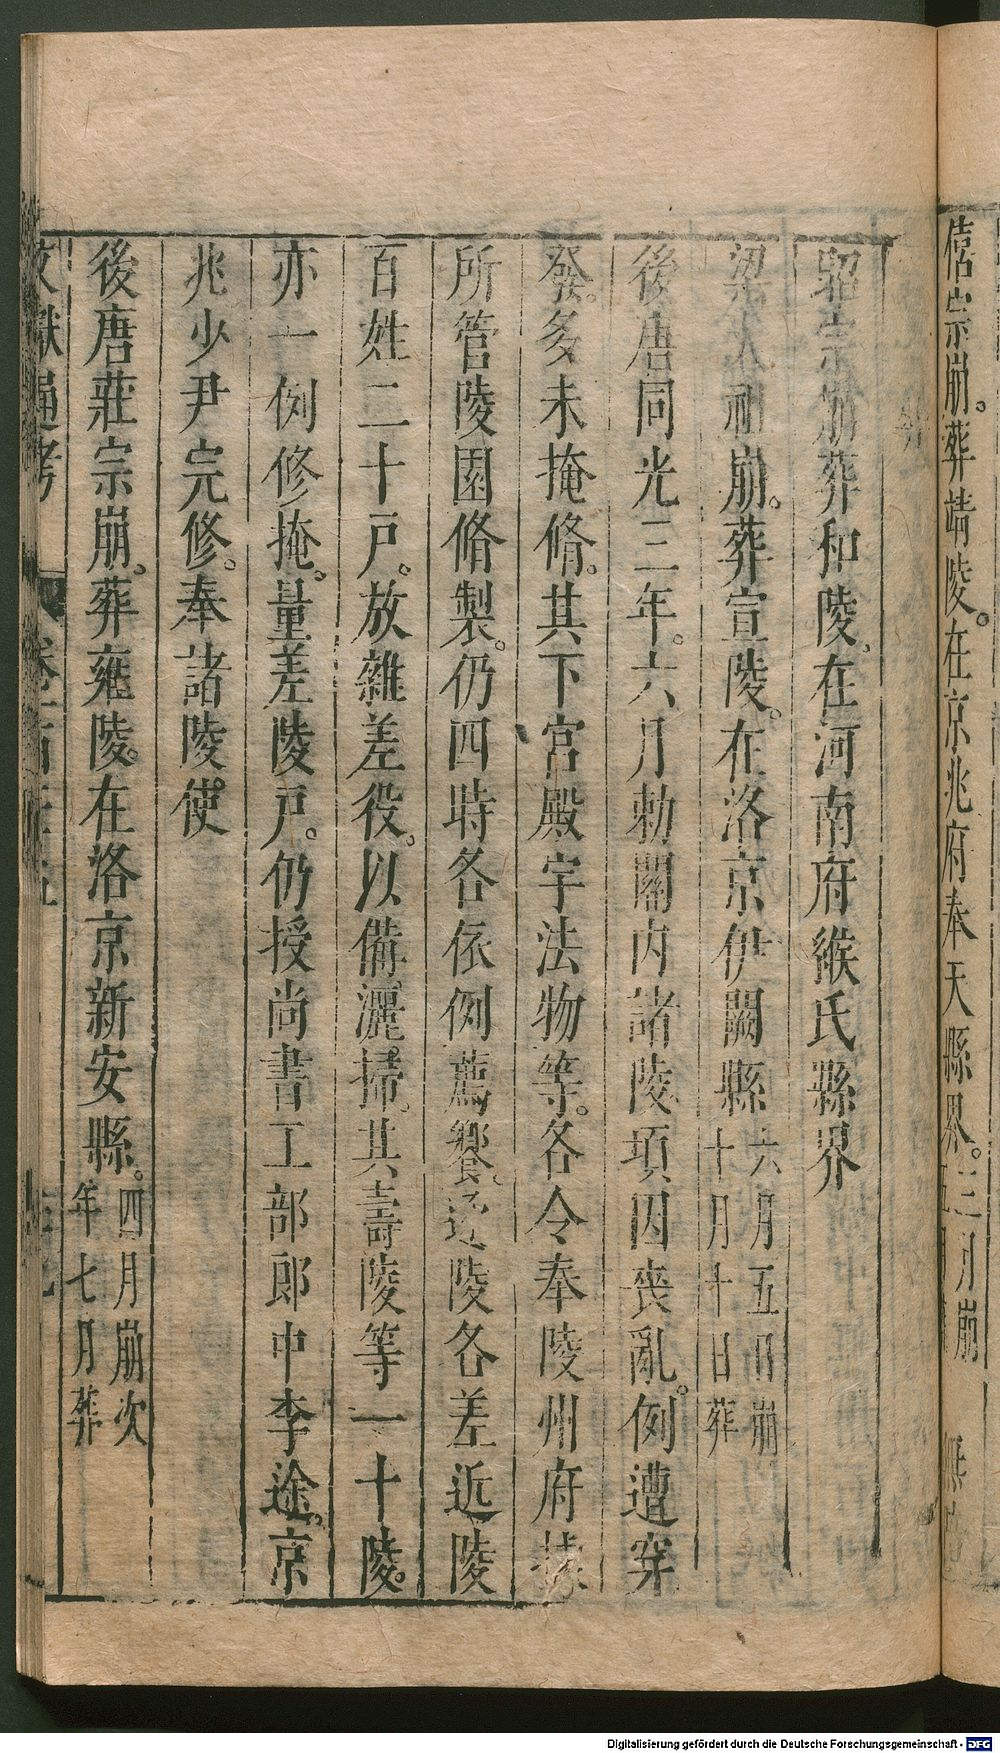 僖宗崩。葬靖陵。在京兆府奉天縣界。三月崩
昭宗崩葬和陵。在河南府緱氏縣界
梁太祖崩。葬宣陵。在洛京伊闕縣六月五日崩十月十日葬
後唐同光三年。六月勅關內諸陵。頃因喪亂。例遭穿
發。多未掩脩。其下宮殿宇法物等。各令奉陵州府據
所管陵園脩製。仍四時各依例薦饗。逐陵各差近陵
百姓二十戶。放雜差役。以備灑掃。其壽陵等一十陵。
亦一例修掩。量差陵戶。仍授尚書工部郎中李途。京
兆少尹完修。奉諸陵使
後唐莊宗崩。葬雍陵。在洛京新安縣。四月崩次年七月葬
文獻通考
Digitalisierung gefördert durch die Deutsche Forschungsgemeinschaft - DFG